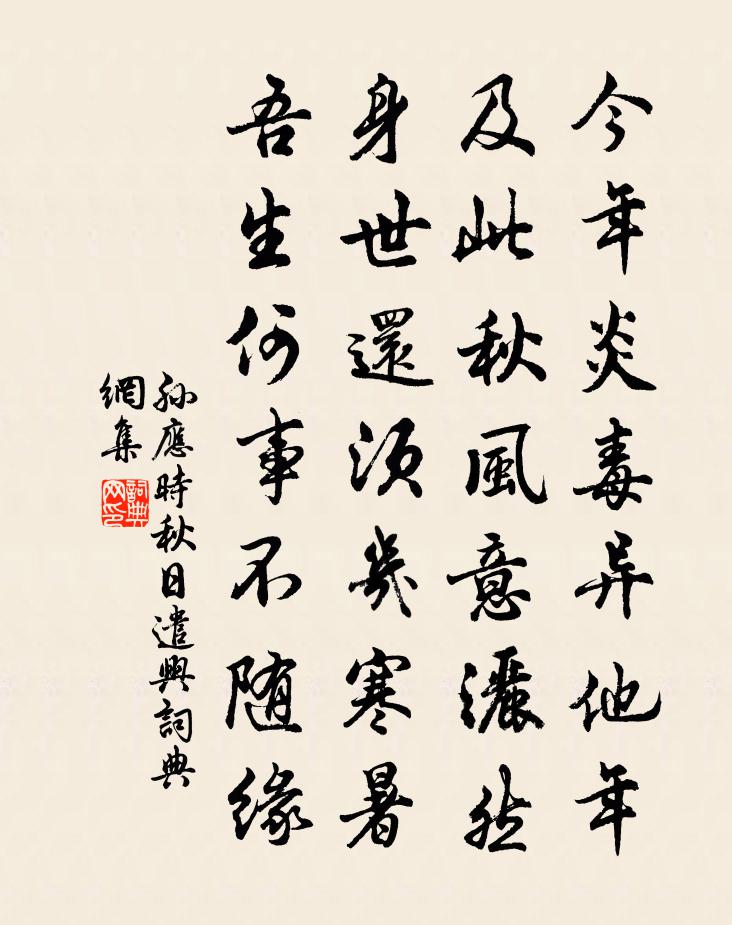 今年炎毒异他年
及此秋風意灑然
身世還須幾寒暑
吾生何事不随緣
孫應時秋日遣興詞典
網集
詞典
网印